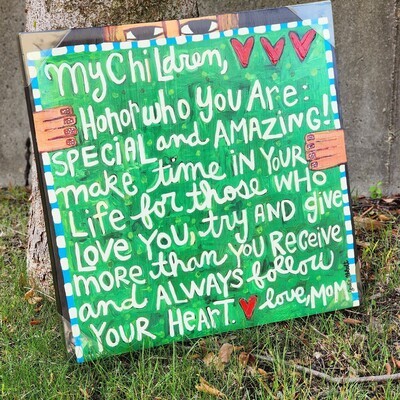 My Children,
Honor who You Are:
SPECIAL and AMAZING!
make time IN YOUR
Life for those WHO
Love You, try AND give
more than You Receive
and ALWAYS follow
YOUR HeArT. love, MOM